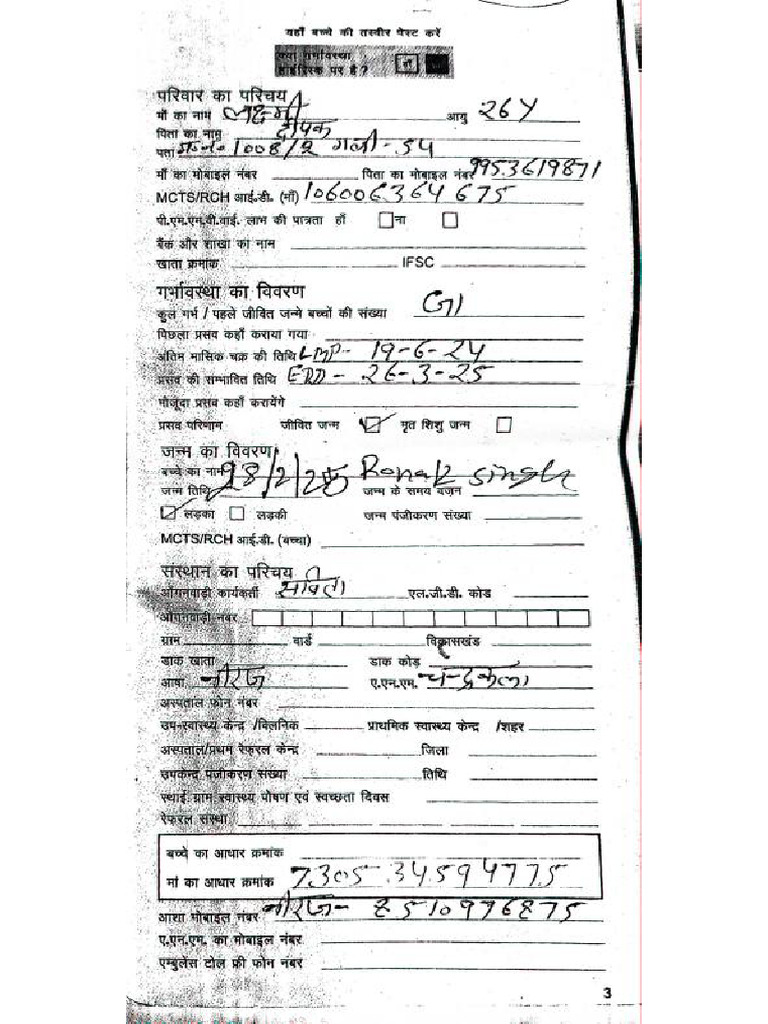 यहाँ बच्चे की तस्वीर पेस्ट करें
क्या गर्भावस्था
हाईरिस्क पर है? हाँ
परिवार का परिचय
माँ का नाम लक्ष्मी आयु 26Y
पिता का नाम दीपक
पता म०न० 1008/2 गली-54
माँ का मोबाइल नंबर पिता का मोबाइल नंबर 9953619871
MCTS/RCH आई.डी. (माँ) 106006364675
पी.एम.एम.वी.वाई. लाभ की पात्रता हाँ ना
बैंक और शाखा का नाम
खाता क्रमांक IFSC
गर्भावस्था का विवरण
कुल गर्भ / पहले जीवित जन्मे बच्चों की संख्या G1
पिछला प्रसव कहाँ कराया गया
अंतिम मासिक चक्र की तिथि LMP- 19-6-24
प्रसव की सम्भावित तिथि EDD- 26-3-25
मौजूदा प्रसव कहाँ करायेंगे
प्रसव परिणाम जीवित जन्म मृत शिशु जन्म
जन्म का विवरण
बच्चे का नाम Ronak Singh
जन्म तिथि 28/2/25 जन्म के समय वजन
लड़का लड़की जन्म पंजीकरण संख्या
MCTS/RCH आई.डी. (बच्चा)
संस्थान का परिचय
आँगनवाड़ी कार्यकर्ती सविता एल.जी.डी. कोड
आँगनवाड़ी नंबर
ग्राम वार्ड विकासखंड
डाक खाता डाक कोड़
आशा नीरज ए.एन.एम. चन्द्रकला
अस्पताल फोन नंबर
उप-स्वास्थ्य केन्द्र /क्लिनिक प्राथमिक स्वास्थ्य केन्द्र /शहर
अस्पताल/प्रथम रेफरल केन्द्र जिला
उपकेन्द्र पंजीकरण संख्या तिथि
स्थाई ग्राम स्वास्थ्य पोषण एवं स्वच्छता दिवस
रेफरल संस्था
बच्चे का आधार क्रमांक
मां का आधार क्रमांक 7305 34594775
आशा मोबाइल नंबर नीरज- 8510976875
ए.एन.एम. का मोबाइल नंबर
एम्बुलेंस टोल फ्री फोन नंबर
3